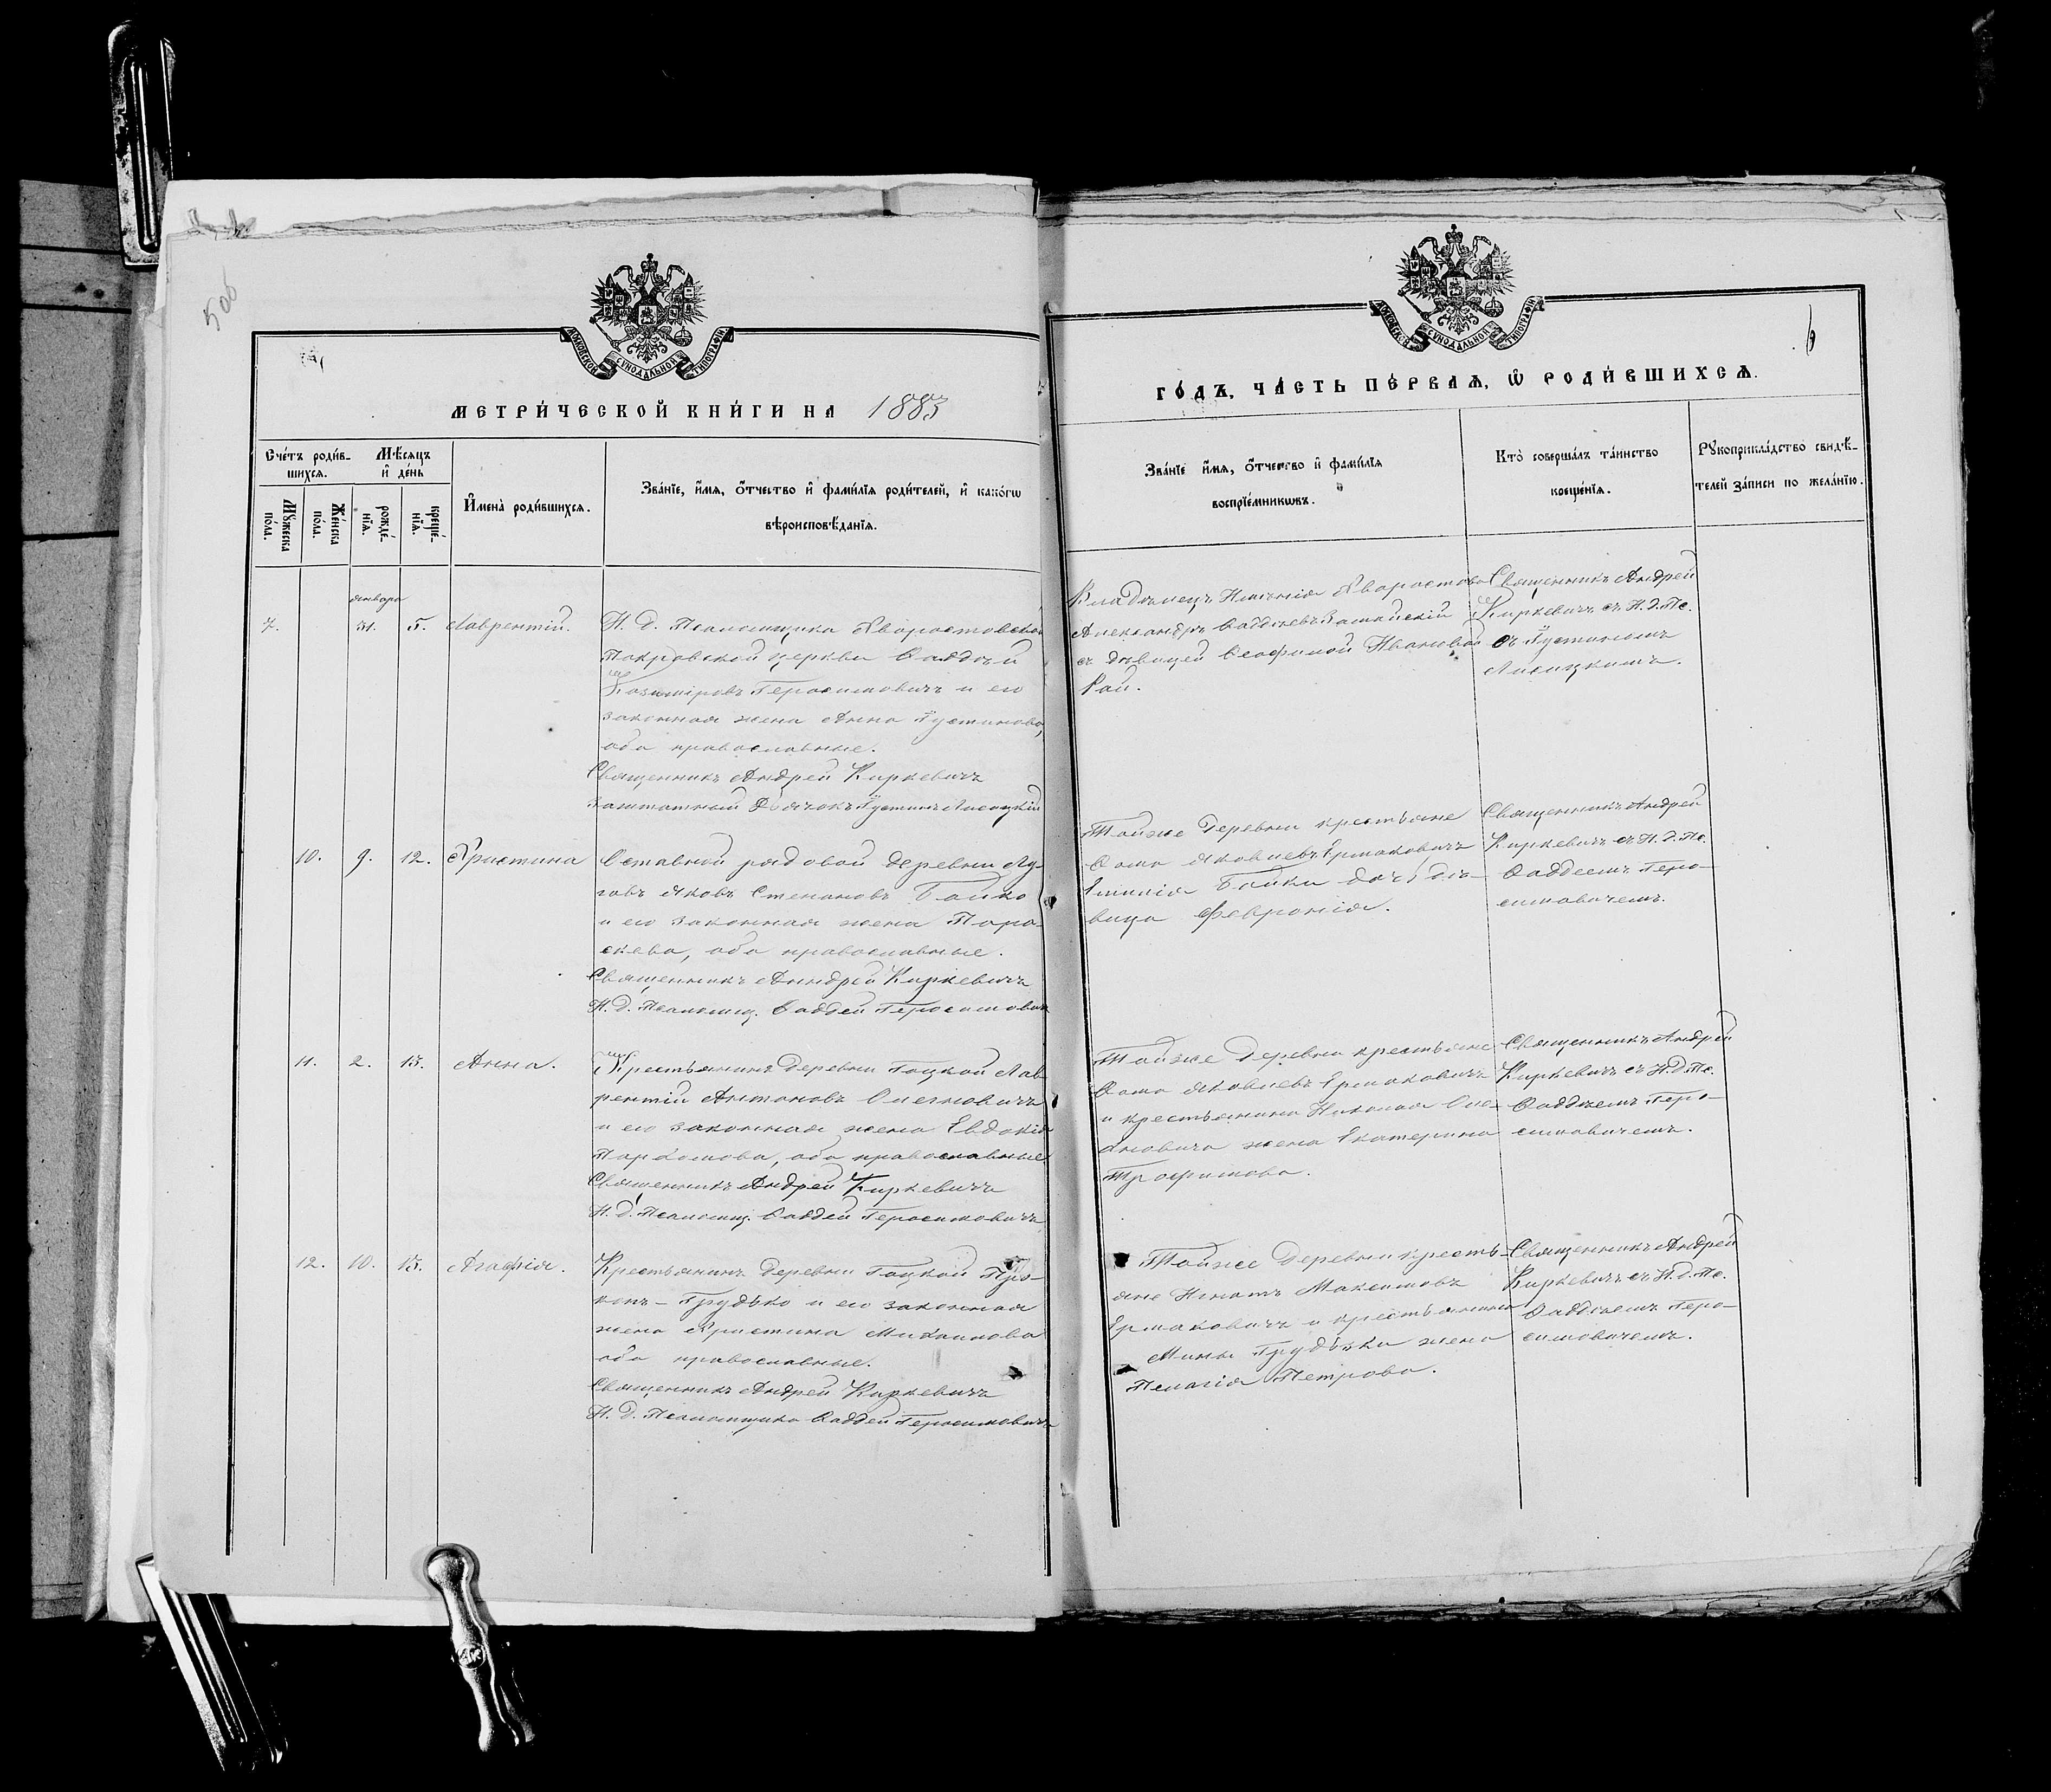 506
МОСКОВСКОЙ СѴНОДАЛЬНОЙ ТИПОГРАФІИ
МЕТРИ́ЧЕСКОЙ КНИ́ГИ НА 1883
Сче́тъ роди́в-
шихся.
Мѣ́сяцъ
и҆ де́нь
Мꙋ́жеска по́ла.
Же́нска по́ла.
рожде́-
нїѧ.
креще́-
нїѧ.
И҆мена̀ роди́вшихся.
Зва́нїе, и҆́мѧ, ѻ҆́тчество и҆ фами́лїѧ роди́телей, и҆ како́гѡ
вѣроисповѣ́данїѧ.
января
7. 31. 5. Лаврентій.
И. д. Псаломщика Хворостовской
Покровской церкви Фаддей
Казиміровъ Герасимовичъ и его
законная жена Анна Іустинова,
оба православные.
Священникъ Андрей Киркевичъ
Заштатный Дьячокъ Іустинъ Лисицкій
10. 9. 12. Христина
Отставной рядовой деревни Лу-
говъ Яковъ Степановъ Бойко
и его законная жена Пара-
скева, оба православные.
Священникъ Андрей Киркевичъ
И. д. Псаломщ. Фаддей Герасимовичъ
11. 2. 13. Анна.
Крестьянинъ деревни Гоцкой Лав-
рентій Антоновъ
и его законная жена Евдокія
Пархомова, оба православные
Священникъ Андрей Киркевичъ
И. д. Псаломщ. Фаддей Герасимовичъ
12. 10. 13. Агафія.
Крестьянинъ деревни Гоцкой Про-
копъ Грудько и его законная
жена Христина Михайлова
оба православные.
Священникъ Андрей Киркевичъ
И. д. Псаломщика Фаддей Герасимовичъ
6
МОСКОВСКОЙ СѴНОДАЛЬНОЙ ТИПОГРАФІИ
ГО́ДЪ, ЧА́СТЬ ПЕ́РВАѦ, Ѽ РОДИ́ВШИХСѦ.
Зва́нїе и҆́мѧ, ѻ҆́тчество и҆ фами́лїѧ
воспрїе́мникѡвъ.
Кто̀ соверша́лъ та́инство
креще́нїѧ.
Рꙋкоприкла́дство свидѣ́-
телей за́писи по жела́нїю.
Владѣлецъ Имѣнія Хворостово
Александръ Фаддѣевъ
съ дѣвицей Ѳеофилой Ивановой
Рай.
Священникъ Андрей
Киркевичъ съ И. д. Пс.
съ Іустиномъ
Лисицкимъ.
Тойже деревни крестьяне
Ѳома Яковлевъ Ермаковичъ
Бойки дочь дѣ-
вица Февронія.
Священникъ Андрей
Киркевичъ съ И. д. Пс.
Фаддеемъ Гера-
симовичемъ.
Тойже деревни крестьяне
Ѳома Яковлевъ Ермаковичъ
и крестьянина Николая
жена Екатерина
Трофимова.
Священникъ Андрей
Киркевичъ съ И. д. Пс.
Фаддѣемъ Гера-
симовичемъ.
Тойже деревни кресть-
яне Игнатъ Максимовъ
Ермаковичъ и крестьянина
Мины Грудька жена
Пелагія Петрова.
Священникъ Андрей
Киркевичъ съ И. д. Пс.
Фаддѣемъ Гера-
симовичемъ.